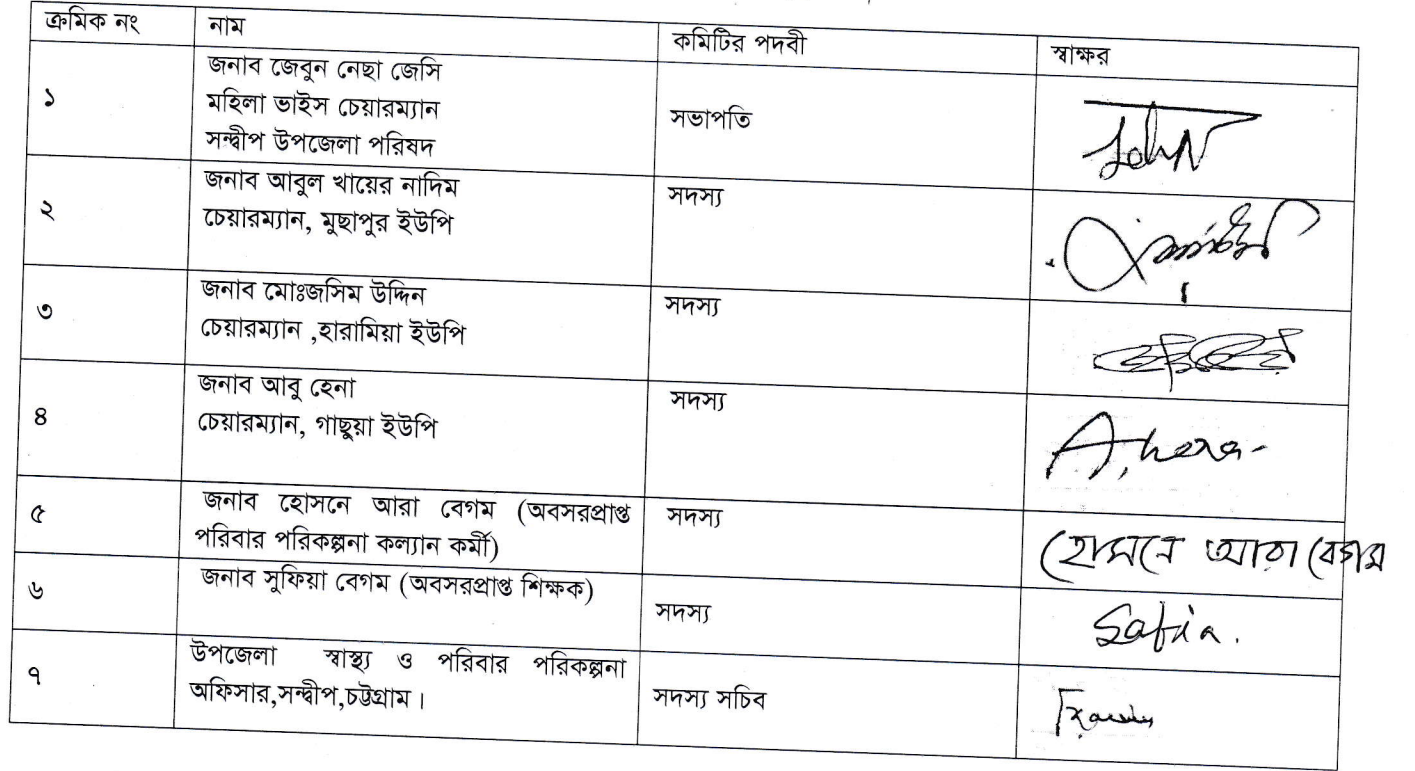 ক্রমিক নং নাম কমিটির পদবী স্বাক্ষর
জনাব জেবুন নেছা জেসি
১ মহিলা ভাইস চেয়ারম্যান সভাপতি
সন্দ্বীপ উপজেলা পরিষদ
জনাব আবুল খায়ের নাদিম সদস্য
২ চেয়ারম্যান, মুছাপুর ইউপি
জনাব মোঃজসিম উদ্দিন সদস্য
৩ চেয়ারম্যান ,হারামিয়া ইউপি
জনাব আবু হেনা সদস্য
৪ চেয়ারম্যান, গাছুয়া ইউপি
A, hena-
৫ জনাব হোসনে আরা বেগম (অবসরপ্রাপ্ত সদস্য
পরিবার পরিকল্পনা কল্যান কর্মী) হোসনে আরা বেগম
৬ জনাব সুফিয়া বেগম (অবসরপ্রাপ্ত শিক্ষক) সদস্য Safia.
উপজেলা স্বাস্থ্য ও পরিবার পরিকল্পনা
৭ অফিসার,সন্দ্বীপ,চট্টগ্রাম। সদস্য সচিব